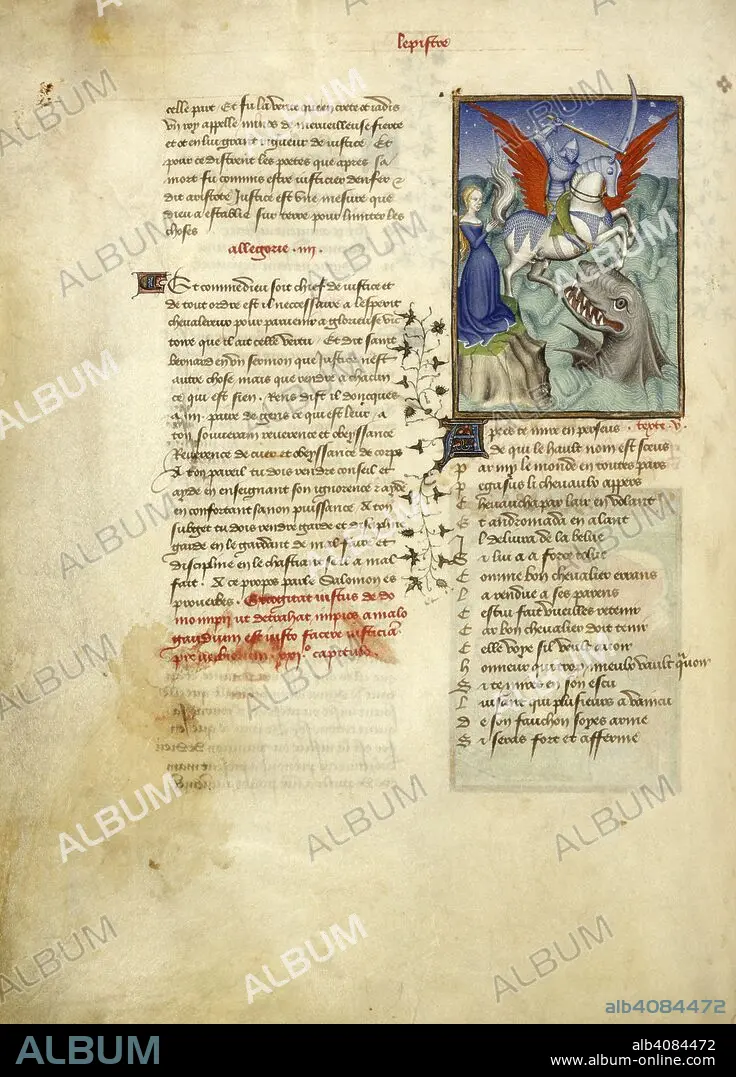 lepistre
celle part. Et fu la verite que en crete ot iadis
vn roy appelle minos de merueilleuse fierte
et ot en lui grant rigueur de iustice Et
pour ce distrent les poetes que apres sa
mort fu commis estre iusticier denfer Et
dit aristote Iustice est vne mesure que
dieu a establie sur terre pour limiter les
choses
allegorie .iiij.
Et comme dieu soit chief de iustice et
de tout ordre est il neccessaire a lesperit
cheualereux pour paruenir a glorieuse vic
toire que il ait celle vertu. Et dit saint
bernard en vn sermon que iustice nest
autre chose mais que rendre a chacun
ce qui est sien. Rens dist il doncques
a .iij. paire de gens ce qui est leur. a
ton souuerain reuerence et obeyssance
Reuerence de cuer et obeyssance de corps
A ton pareil tu dois rendre conseil et
ayde en enseignant son ignorence et ayde
en confortant sa non puissance A ton
subget tu dois rendre garde et discipline
garde en le gardant de mal faire et
discipline en le chastiant sil a mal
fait. A ce propos parle Salomon es
prouerbes. Excogitat iustus de do
mo impij ut detrahat impios a malo
gaudium est iusto facere iusticiam
prouerbiorum .xxi.º capitulo.
Apres te mire en perseus . texte .v.
de qui le hault nom est sceus
par my le monde en toutes pars
pegasus li cheuaulx appers
Cheuaucha par lair en volant
Et andromada en alant
Il deliura de la belue
Si lui a a force tolue
Comme bon cheualier errans
La rendue a ses parens
Cestui fait vueilles retenir
Car bon cheualier doit tenir
Celle voye sil veult auoir
honneur qui trop mieulx vault quauoir
Si te mires en son escu
Luisant qui plusieurs a vaincu
De son fauchon soyes arme
Si seras fort et afferme
ALBUM
alb4084472
ALBUM
alb4084472
www.album-online.com